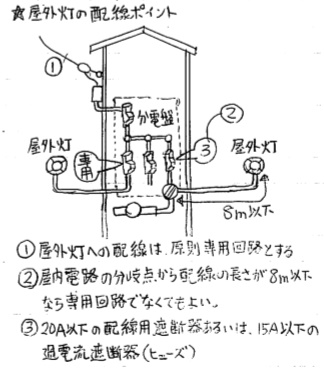 ☆屋外灯の配線ポイント
①
分電盤
②
屋外灯
専用
③
屋外灯
8m以下
①屋外灯への配線は、原則専用回路とする
②屋内電路の分岐点から配線の長さが8m以下
なら専用回路でなくてもよい。
③20A以下の配線用遮断器あるいは、15A以下の
過電流遮断器(ヒューズ)